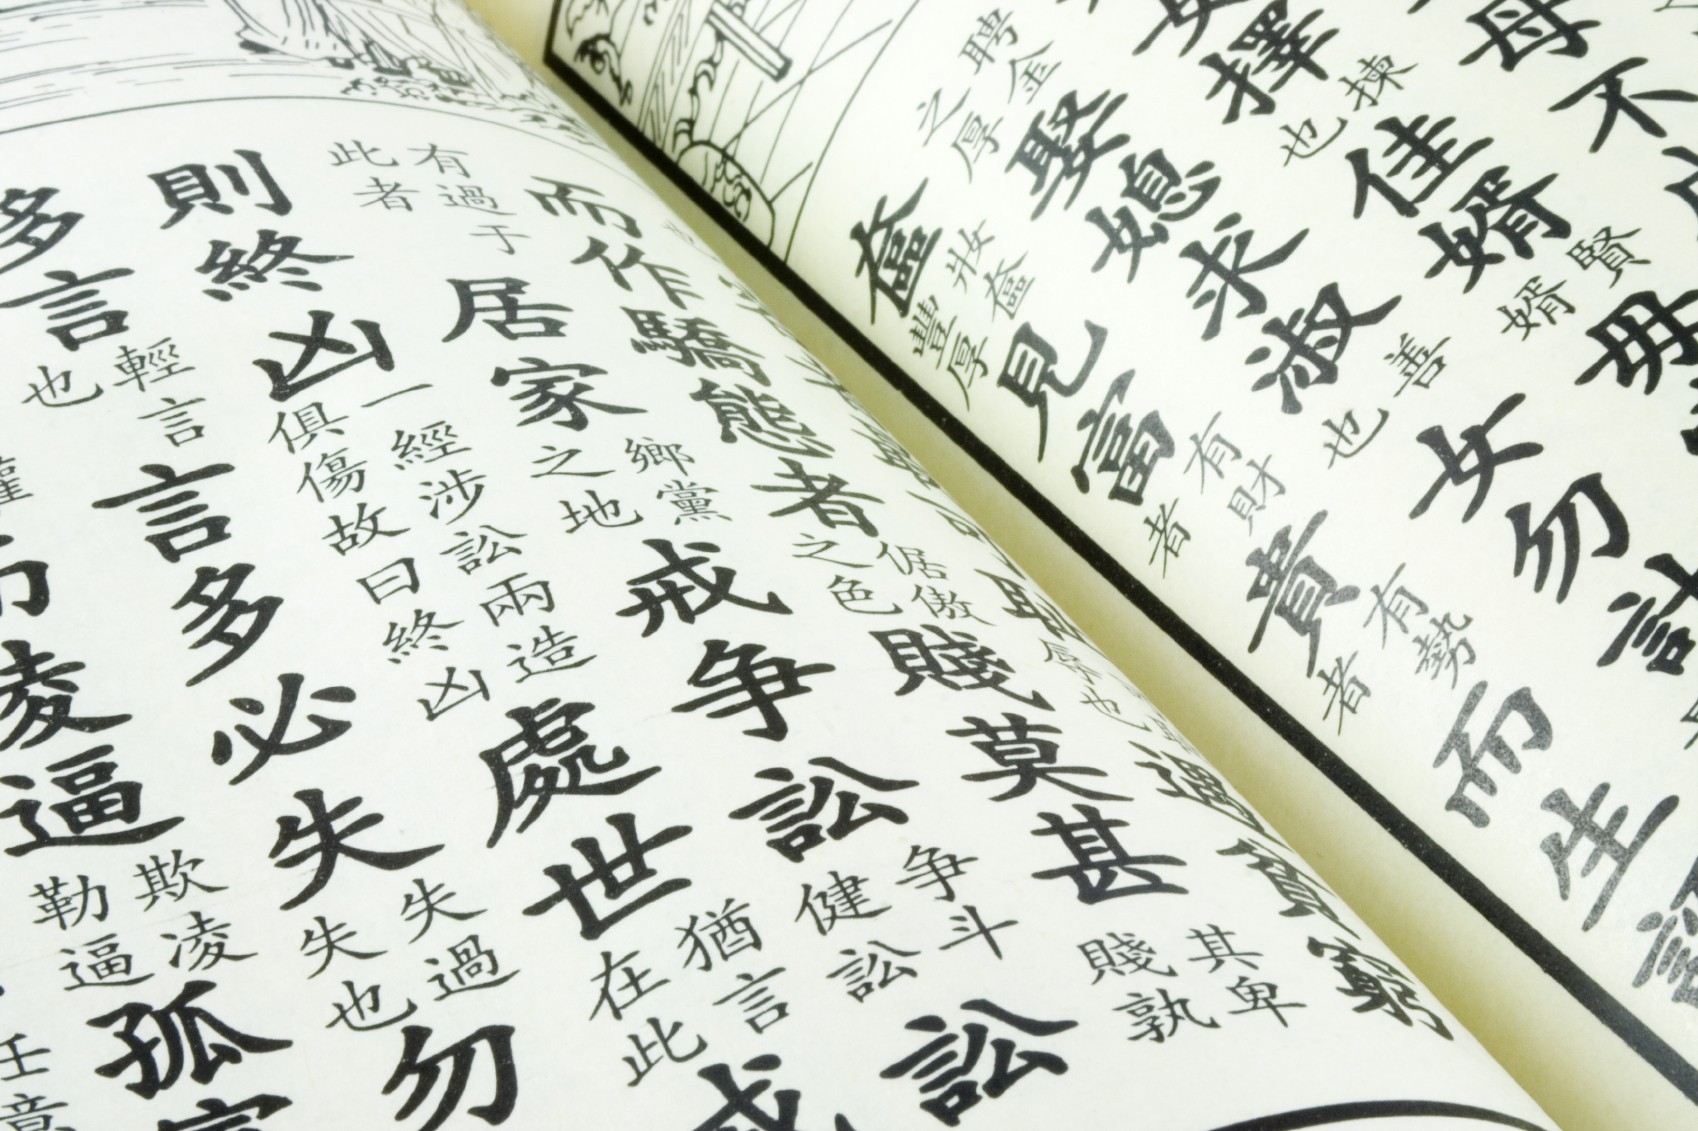 母不
女擇揀也佳婿賢婿毋
聘金之厚娶媳求淑善也女勿計
奩妝奩豐厚見富有財者貴有勢者而生
恥辱也遇貧窮
而作驕態者倨傲之色賤莫甚其卑賤孰
有過于此者居家鄉黨之地戒争訟争斗健訟訟
則終凶一經涉訟兩造俱傷故曰終凶處世猶言在此戒
多言輕言也言多必失失過失也勿
凌逼欺凌勒逼孤
任意